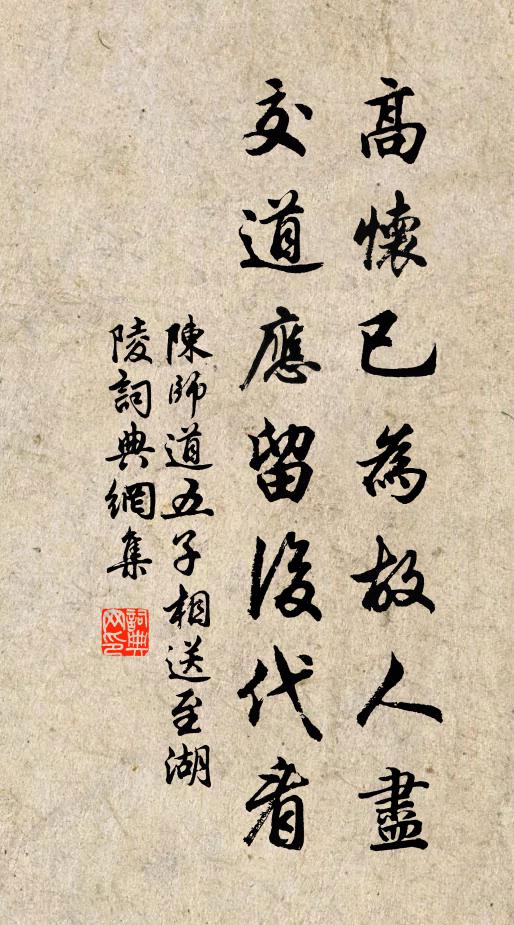 高懷已為故人盡
交道應留後代看
陳師道五子相送至湖
陵詞典網集
詞典
网印